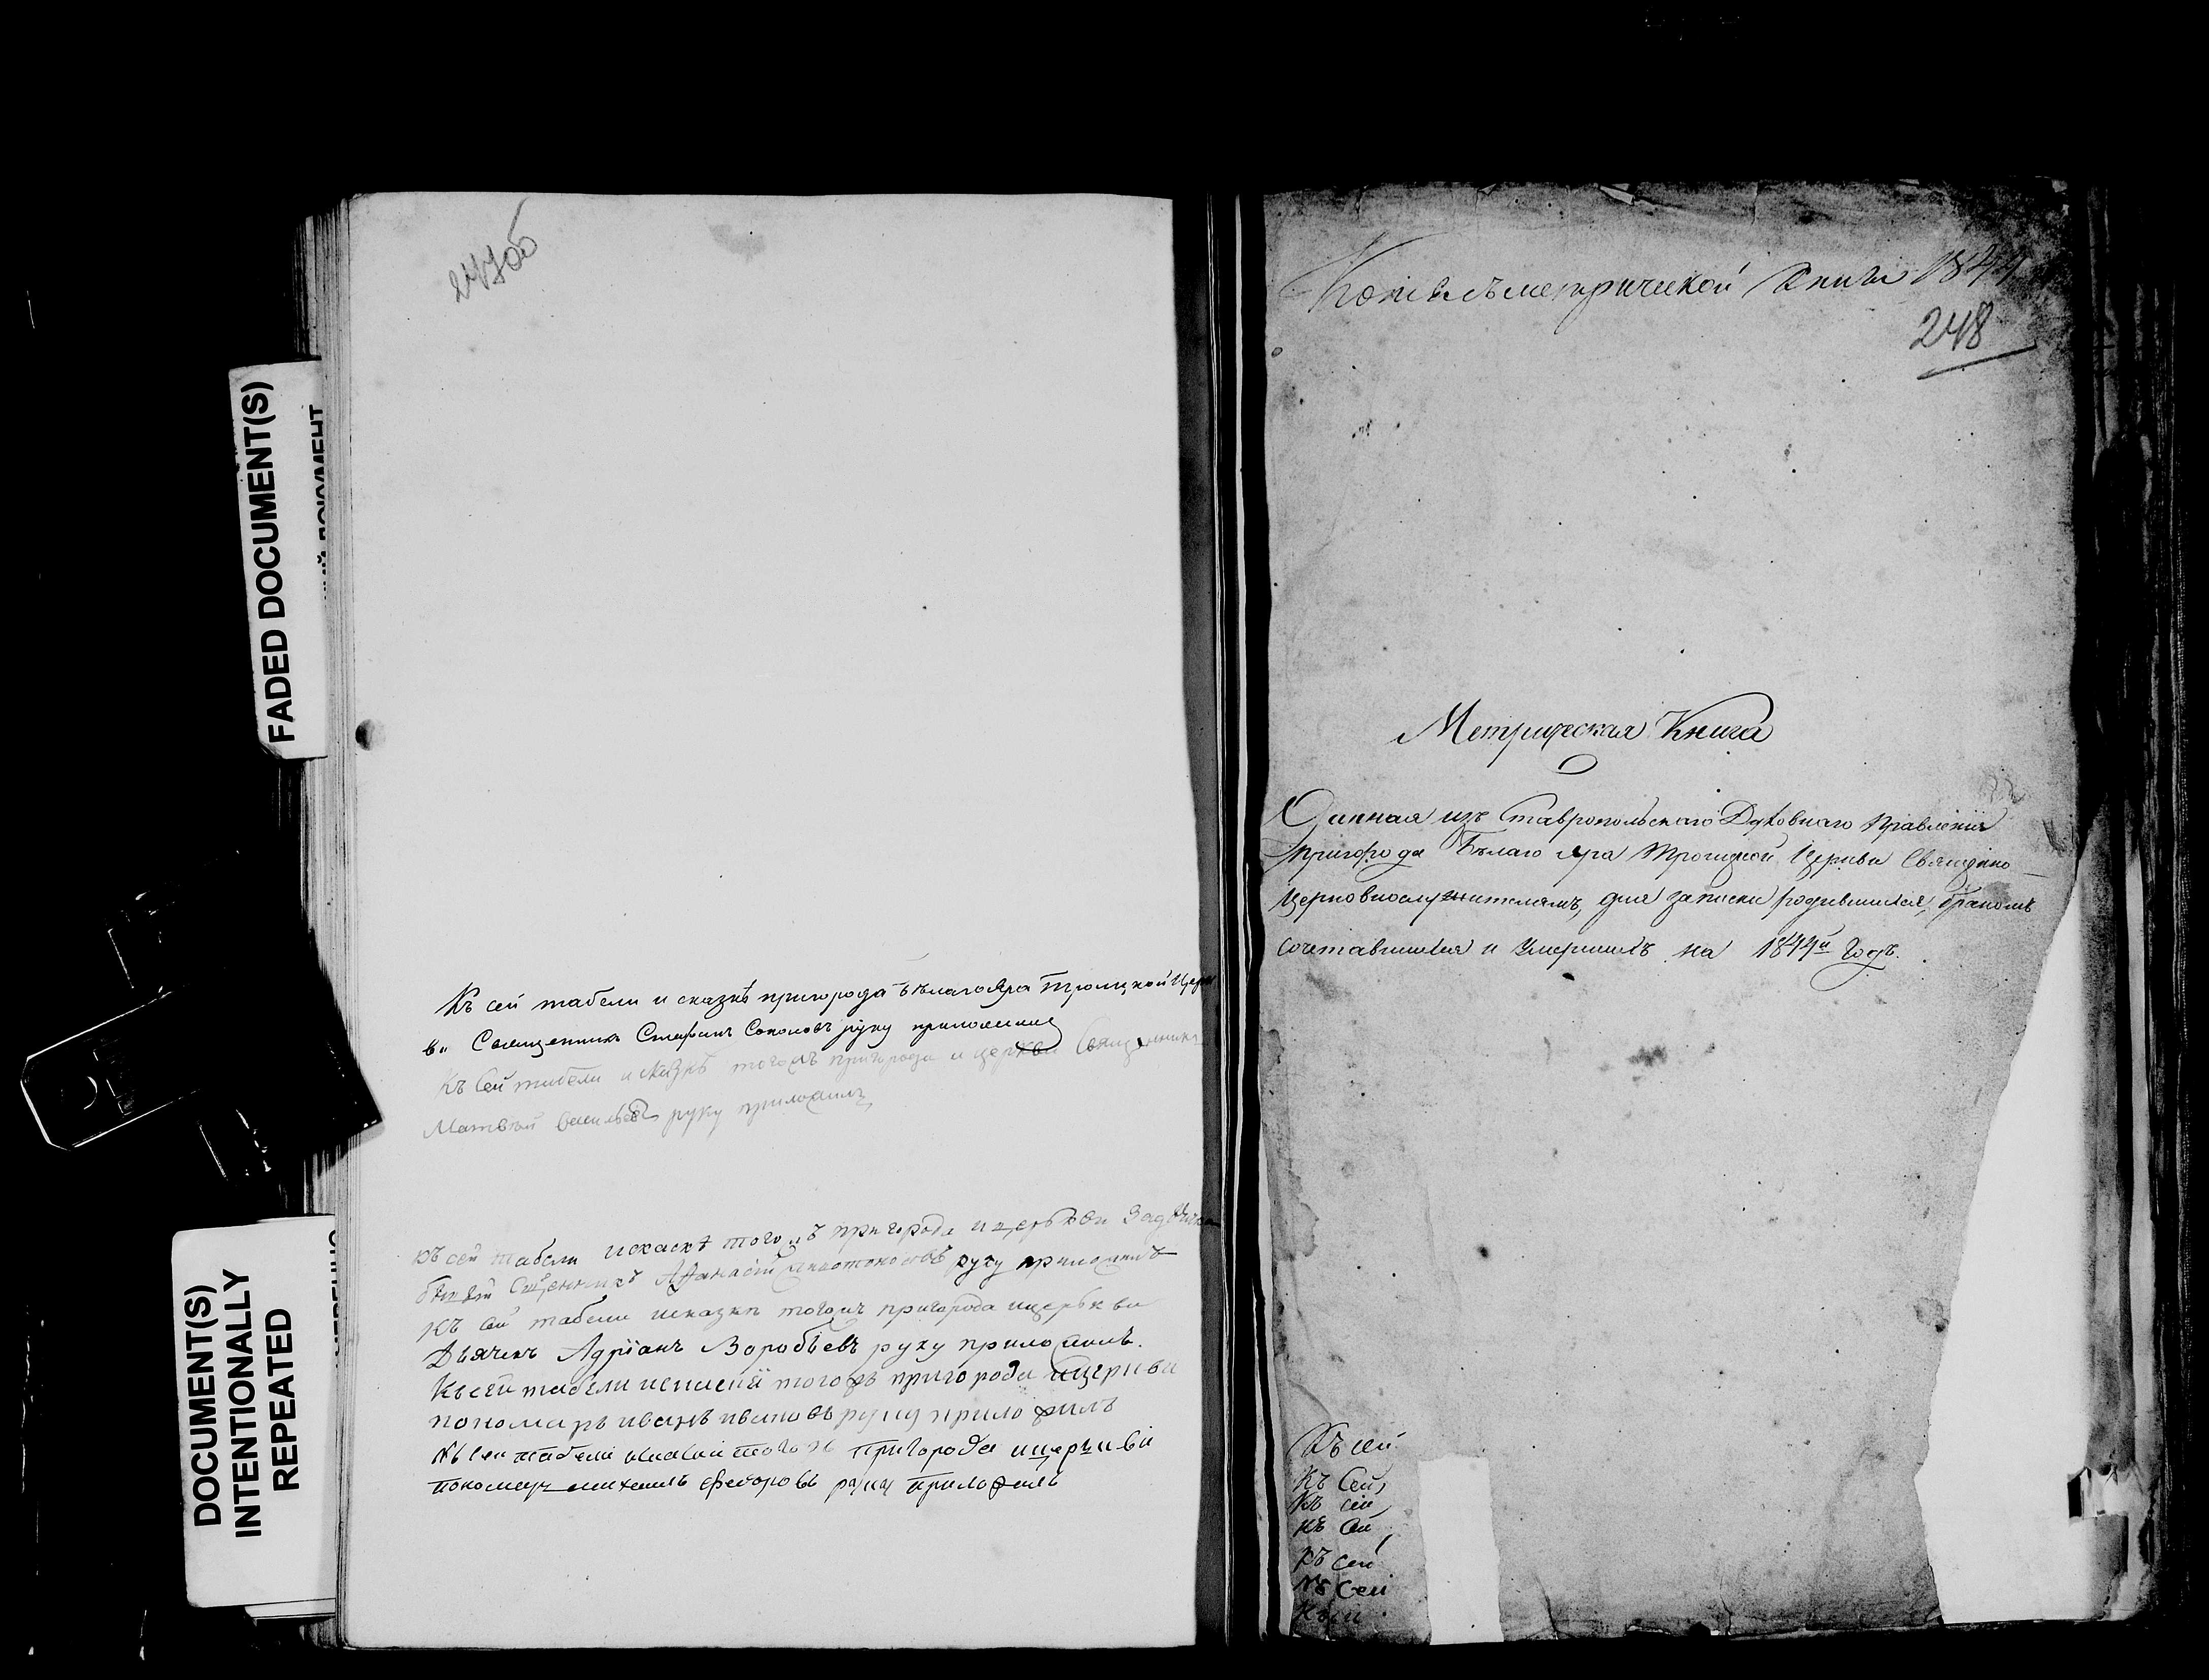 FADED DOCUMENT(S)
DOCUMENT(S)
INTENTIONALLY
REPEATED
247об
Къ сей табели и сказкѣ пригорода Бѣлаго Яра Троицкой Церк
в. Священникъ Стефанъ Соколовъ руку приложилъ
Къ сей табели и сказкѣ тогожъ пригорода и церкви Священникъ
Матвѣй Васильевъ руку приложилъ
къ сей табели и скаскѣ тогожъ пригорода и церькви
Священникъ Афанасій руку приложилъ
Къ сей табели и сказкѣ тогожъ пригорода и церькви
Дьячекъ Адріанъ Воробьевъ руку приложилъ.
Къ сей табели тогожъ пригорода и церкви
пономарь иванъ ивановъ руку приложилъ
Къ сей табели тогожъ пригорода и церькви
пономарь михаилъ федоровъ руку приложилъ
Копія съ метрической книги 1844
248
Метрическая Книга
Данная изъ Ставропольскаго Духовнаго Правленія
пригорода Бѣлаго Яра Троицкой Церкви Священно
церковнослужителямъ, для записки родившихся, бракомъ
сочетавшихся и умершихъ на 1844й Годъ.
Къ сей
Къ Сей
Къ сей
Къ сей
Къ сей
Къ Сей